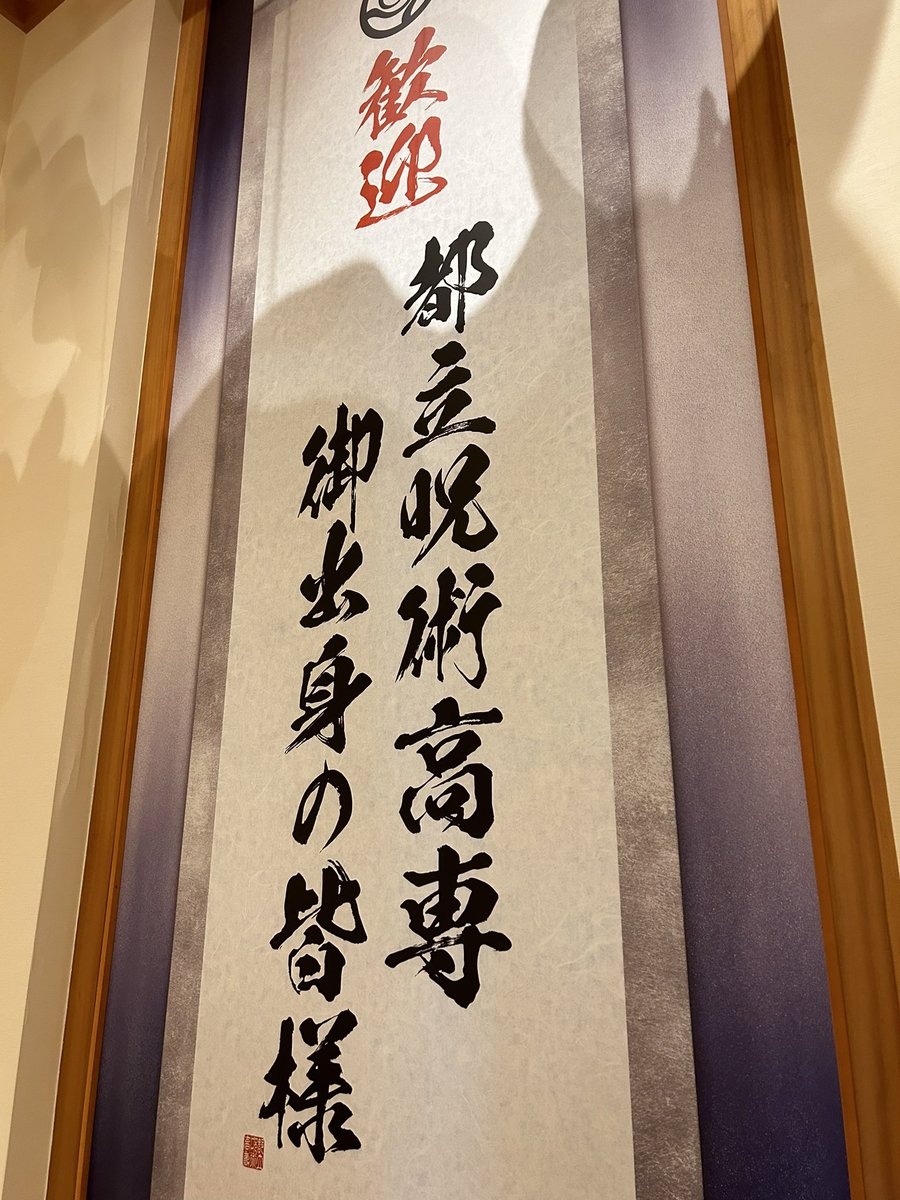 歓迎
都立呪術高専
御出身の皆様